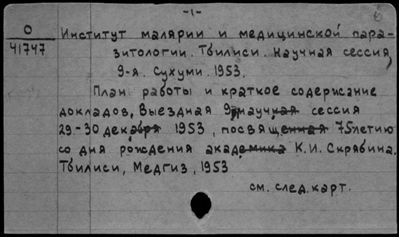 -1-
О
41747
Институт малярии и медицинской пара-
зитологии. Тбилиси. Научная сессия,
9-я. Сухуми. 1953.
План работы и краткое содержание
докладов, Выездная 9 научная сессия
29-30 декабря 1953, посвященная 75летию
со дня рождения академика К.И. Скрябина.
Тбилиси, Медгиз, 1953
см. след. карт.